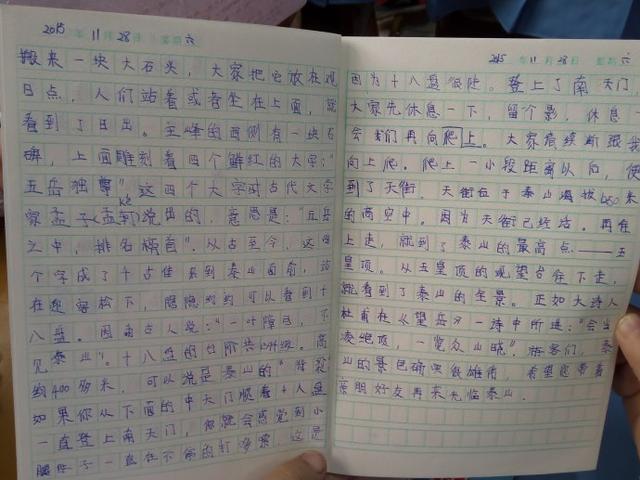 2015年11月28日 星期六
搬来一块大石头，大家把它放在观
日点，人们站着或者坐在上面，就
看到了日出。主峰的西侧有一块石
碑，上面雕刻着四个鲜红的大字："
五岳独尊"这四个大字或古代大文学
家孟子(孟轲)说出的，意思是："五岳
之中，排名榜首"。从古至今，这四
个字成了千古佳 来到泰山面前，站
在迎客松下，隐隐约约可以看到十
八盘。因而古人说："一叶障目，不
见泰山"。十八盘的台阶共 级。高
约400多米，可以说是泰山的"
如果你从下面的中天门顺着十八盘
一直登上南天门，你就会感觉到小
腿肚子一直在不停的打哆嗦，这是
2015年11月28日 星期六
因为十八盘很陡。登上了南天门，
大家先休息一下，留个影，休息一
会我们再向爬上。大家 继续跟我
向上爬。爬上一小段距离以后，便
到了天街。天街位于泰山海拔 米
的高空中。因为天街已经 。再往
上走，就到了泰山的最高点——玉
皇顶。从玉皇顶的观望台往下走，
就看到了泰山的全景。正如大诗人
杜甫在《望岳》一诗中所述："会当
凌绝顶，一览众山 "。游客们，泰
山的景色 雄甫，希望您带着
亲朋好友再来光临泰山。